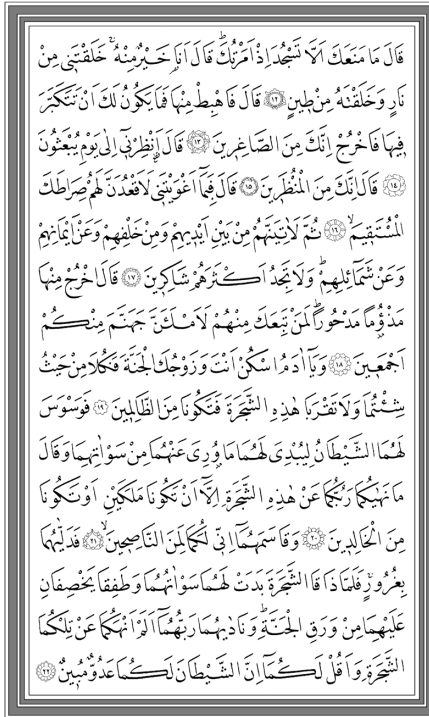 قَالَ مَا مَنَعَكَ اَلَّا تَسْجُدَ اِذْ اَمَرْتُكَۜ قَالَ اَنَا۬ خَيْرٌ مِنْهُۚ خَلَقْتَنٖي مِنْ
نَارٍ وَخَلَقْتَهُ مِنْ طٖينٍ ﴿١٢﴾ قَالَ فَاهْبِطْ مِنْهَا فَمَا يَكُونُ لَكَ اَنْ تَتَكَبَّرَ
فٖيهَا فَاخْرُجْ اِنَّكَ مِنَ الصَّاغِرٖينَ ﴿١٣﴾ قَالَ اَنْظِرْنٖٓي اِلٰى يَوْمِ يُبْعَثُونَ
﴿١٤﴾ قَالَ اِنَّكَ مِنَ الْمُنْظَرٖينَ ﴿١٥﴾ قَالَ فَبِمَٓا اَغْوَيْتَنٖي لَاَقْعُدَنَّ لَهُمْ صِرَاطَكَ
الْمُسْتَقٖيمَۙ ﴿١٦﴾ ثُمَّ لَاٰتِيَنَّهُمْ مِنْ بَيْنِ اَيْدٖيهِمْ وَمِنْ خَلْفِهِمْ وَعَنْ اَيْمَانِهِمْ
وَعَنْ شَمَٓائِلِهِمْۜ وَلَا تَجِدُ اَكْثَرَهُمْ شَاكِرٖينَ ﴿١٧﴾ قَالَ اخْرُجْ مِنْهَا
مَذْؤُ۫مًا مَدْحُورًاۜ لَمَنْ تَبِعَكَ مِنْهُمْ لَاَمْلَـَٔنَّ جَهَنَّمَ مِنْكُمْ
اَجْمَعٖينَ ﴿١٨﴾ وَيَٓا اٰدَمُ اسْكُنْ اَنْتَ وَزَوْجُكَ الْجَنَّةَ فَكُلَا مِنْ حَيْثُ
شِئْتُمَا وَلَا تَقْرَبَا هٰذِهِ الشَّجَرَةَ فَتَكُونَا مِنَ الظَّالِمٖينَ ﴿١٩﴾ فَوَسْوَسَ
لَهُمَا الشَّيْطَانُ لِيُبْدِيَ لَهُمَا مَا وُ۫رِيَ عَنْهُمَا مِنْ سَوْاٰتِهِمَا وَقَالَ
مَا نَهٰيكُمَا رَبُّكُمَا عَنْ هٰذِهِ الشَّجَرَةِ اِلَّٓا اَنْ تَكُونَا مَلَكَيْنِ اَوْ تَكُونَا
مِنَ الْخَالِدٖينَ ﴿٢٠﴾ وَقَاسَمَهُمَٓا اِنّٖي لَكُمَا لَمِنَ النَّاصِحٖينَۙ ﴿٢١﴾ فَدَلّٰيهُمَا
بِغُرُورٍۚ فَلَمَّا ذَاقَا الشَّجَرَةَ بَدَتْ لَهُمَا سَوْاٰتُهُمَا وَطَفِقَا يَخْصِفَانِ
عَلَيْهِمَا مِنْ وَرَقِ الْجَنَّةِۜ وَنَادٰيهُمَا رَبُّهُمَٓا اَلَمْ اَنْهَكُمَا عَنْ تِلْكُمَا
الشَّجَرَةِ وَاَقُلْ لَكُمَٓا اِنَّ الشَّيْطَانَ لَكُمَا عَدُوٌّ مُبٖينٌ ﴿٢٢﴾